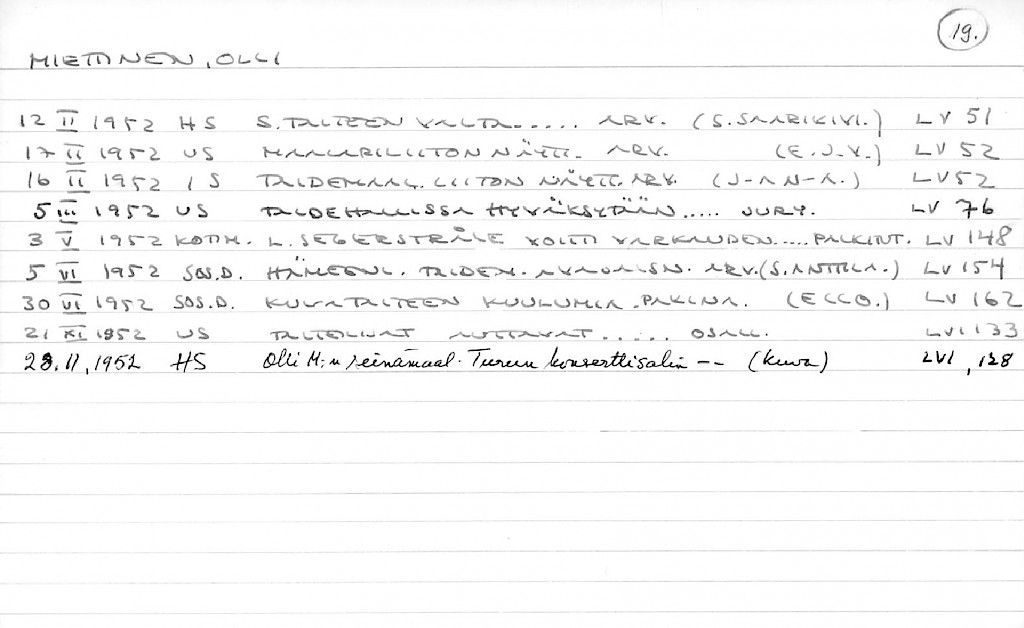 19.
MIETTINEN, OLLI
12 II 1952 HS S. TAITEEN VALTA..... ARV. (S. SAARIKIVI.) LV 51
17 II 1952 US MAALARILIITON NÄYTT. ARV. (E.J.V.) LV 52
16 II 1952 IS TAIDEMAAL. LIITON NÄYTT. ARV. (J-A N-A.) LV 52
5 III 1952 US TAIDEHALLISSA HYVÄKSYTÄÄN..... JURY. LV 76
3 V 1952 KOTIM. L. SEGERSTRÅLE VOITTI VARKAUDEN..... PALKINT. LV 148
5 VI 1952 SOS.D. HÄMEENL. TAIDEM. ARV. (S. ANTTILA.) LV 154
30 VI 1952 SOS.D. KUVATAITEEN KUULUMIA. PAKINA. (ECCO.) LV 162
21 XI 1952 US TAITEILIJAT AUTTAVAT..... OSALL. LVI 133
28.11,1952 HS Olli M:n seinämaal. Turun konserttisalin -- (kuva) LVI, 138